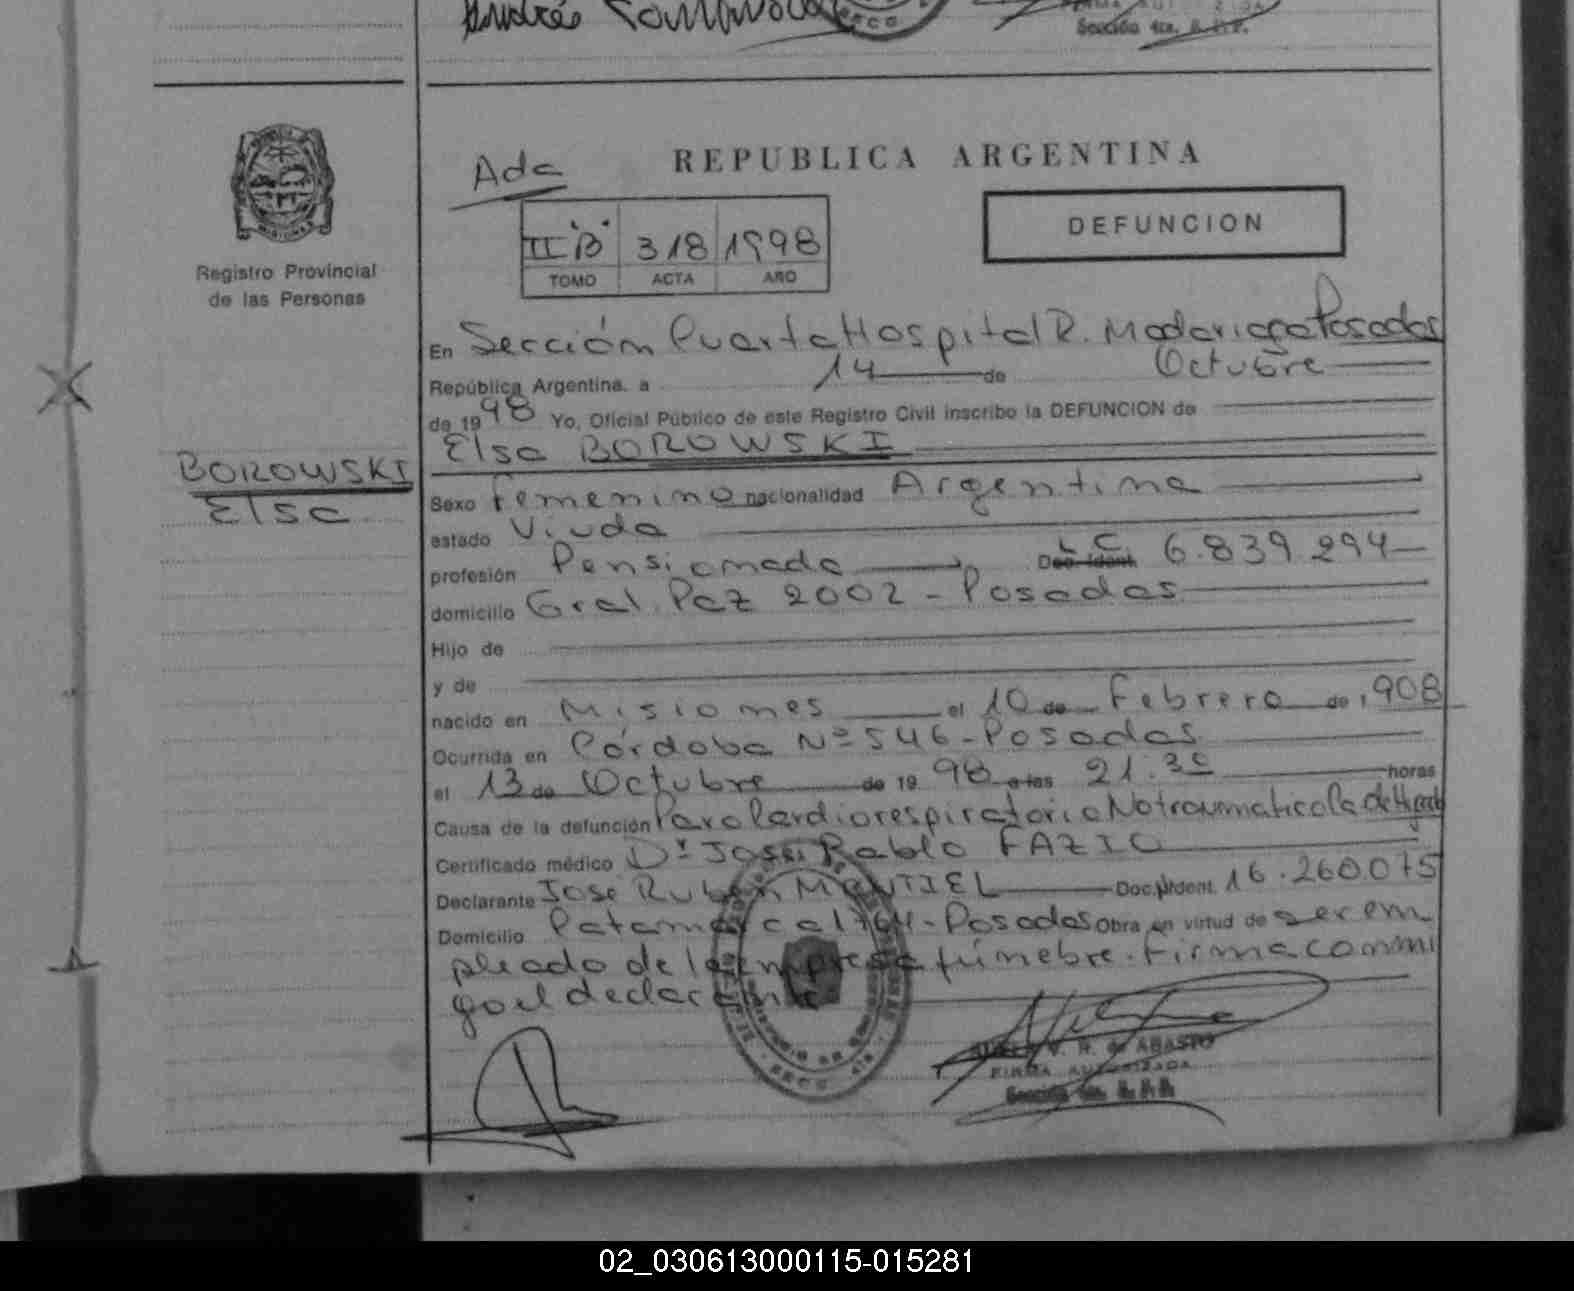 Andrés
Sección 4ta. R.P.P.
REPUBLICA ARGENTINA
Ada
DEFUNCION
II "B" 318 1998
TOMO ACTA AÑO
Registro Provincial
de las Personas
En Sección Cuarta Hospital R. Madariaga Posadas
República Argentina, a 14 de Octubre
de 1998 Yo, Oficial Público de este Registro Civil inscribo la DEFUNCION de
Elsa BOROWSKI
BOROWSKI
Elsa
Sexo Femenino nacionalidad Argentina
estado Viuda
profesión Pensionada Doc. Ident. L C 6.839.294
domicilio Gral. Paz 2002 - Posadas
Hijo de
y de
nacido en Misiones el 10 de Febrero de 1908
Ocurrida en Córdoba Nº 546 - Posadas
el 13 de Octubre de 1998 a las 21.30 horas
Causa de la defunción Paro Cardiorespiratorio No traumatico Ca de
Certificado médico Dr José Pablo FAZIO
Declarante José Ruben MONTIEL Doc. Ident. 16.260.075
Domicilio Catamarca 1764 - Posadas Obra en virtud de ser em
pleado de la empresa fúnebre. Firma conmi
go el declarante
V. R. de ABASTO
FIRMA AUTORIZADA
Sección 4ta. R.P.P.
02_030613000115-015281